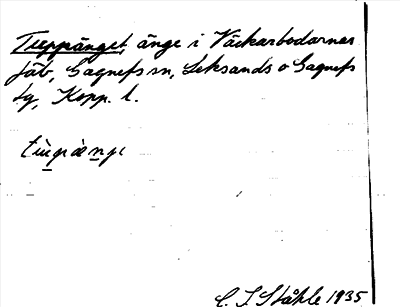 Tuppänget, änge i Väckarbodarnes
fäb, Gagnefs sn, Leksands o Gagnefs
tg, Kopp. l.
C. I. Ståhle 1935